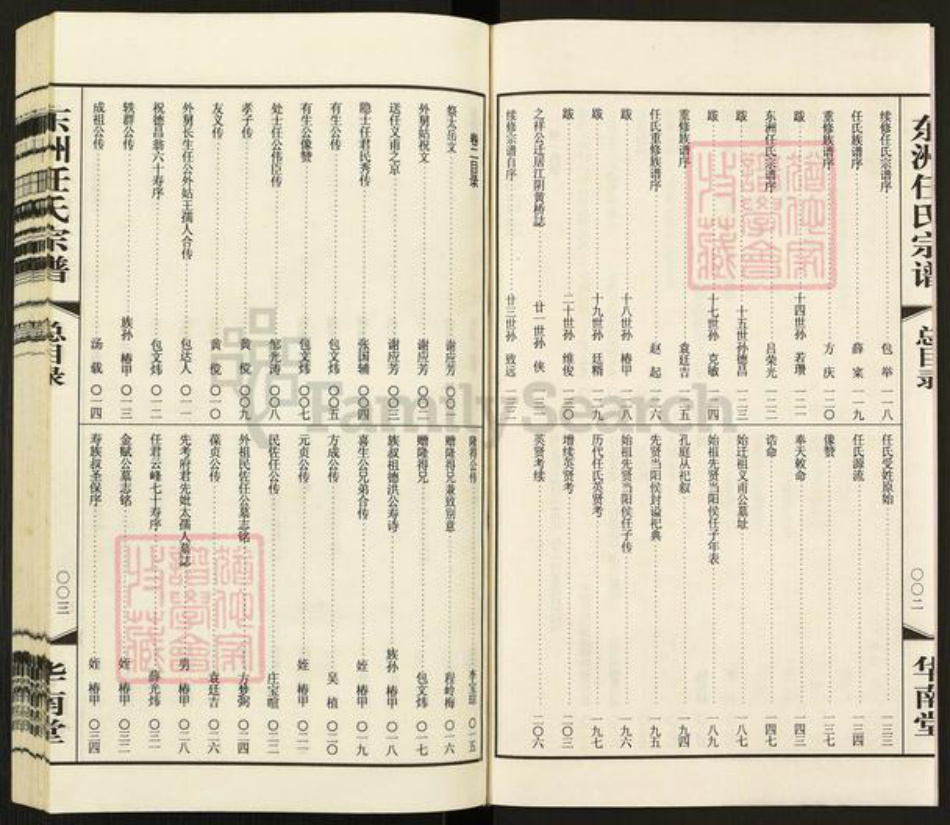 东洲任氏宗谱
总目录
〇〇二
华南堂
续修任氏宗谱序 包 举 一一八
任氏族谱序 薛 寀 一一九
重修族谱序 方 庆 一二〇
跋 十四世孙 若瓒 一二一
东洲任氏宗谱序 吕荣光 一二二
跋 十五世孙德昌 一二三
跋 十七世孙 克敏 一二四
重修族谱序 袁廷吉 一二五
任氏重修族谱序 赵 起 一二六
跋 十八世孙 椿甲 一二八
跋 十九世孙 廷楠 一二九
跋 二十世孙 维俊 一三〇
之祥公迁居江阴黄桥誌 廿一世孙 侠
续修宗谱自序 廿三世孙 致远 一三二
任氏受姓原始 一三三
任氏源流 一三四
像赞 一三七
奉天敕命 一四三
诰命 一四七
始迁祖义甫公墓址 一八七
始祖先贤当阳侯任子年表 一八九
孔庭从祀叙 一九四
先贤当阳侯封谥祀典 一九五
始祖先贤当阳侯任子传 一九六
历代任氏英贤考 一九七
增续英贤考 二〇三
英贤考续 二〇六
卷二目录
祭太岳文 谢应芳 〇〇一
外舅姑祝文 谢应芳 〇〇二
送任义甫之京 谢应芳 〇〇三
隐士任君民秀传 张国辅 〇〇四
有生公传 包文炜 〇〇五
有生公像赞 包文炜 〇〇七
处士任公伟臣传 邹光涛 〇〇八
孝子传 黄 傥 〇〇九
友义传 黄 傥 〇一〇
外舅长生任公外姑王孺人合传 包达人 〇一一
祝德昌翁六十寿序 包文炜 〇一二
轶群公传 族孙 椿甲 〇一三
成祖公传 汤 载 〇一四
隆得公传 李宝琼 〇一五
赠隆得兄兼致别意 程岭梅 〇一六
赠隆得兄 包文炜 〇一七
族叔祖德洪公寿诗 族孙 椿甲 〇一八
喜生公兄弟合传 姪 椿甲 〇一九
方成公传 吴 植 〇二〇
元贞公传 姪 椿甲 〇二一
民佐任公传 庄宝暄 〇二二
外祖民佐任公墓志铭 方梦弼 〇二四
葆贞公传 袁廷吉 〇二六
先考府君先妣太孺人墓誌 男 椿甲 〇二八
任君云峰七十寿序 薛光炜 〇三一
金赋公墓志铭 姪 椿甲 〇三二
寿族叔圣保序 姪 椿甲 〇三四
东洲任氏宗谱
总目录
〇〇三
华南堂
FamilySearch